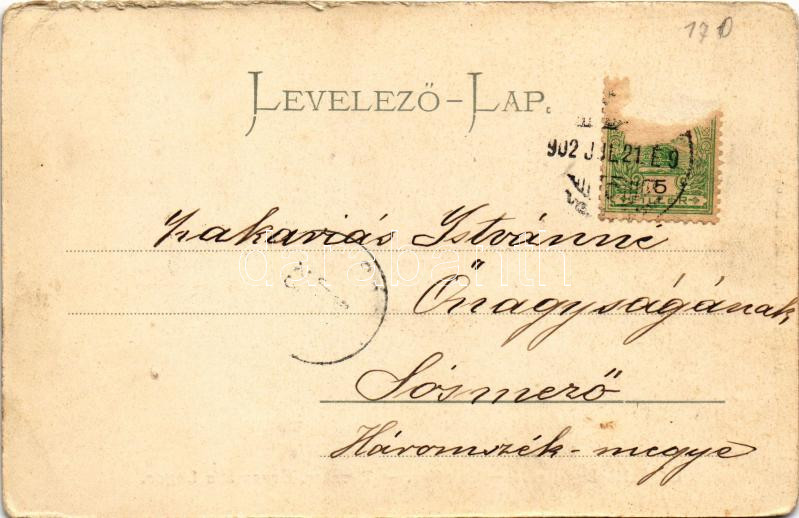 170
LEVELEZŐ-LAP.
902 JUL 21 É 9
5
Zakariás Istvánné
Őnagyságának
Sósmező
Háromszék-megye
darabanth